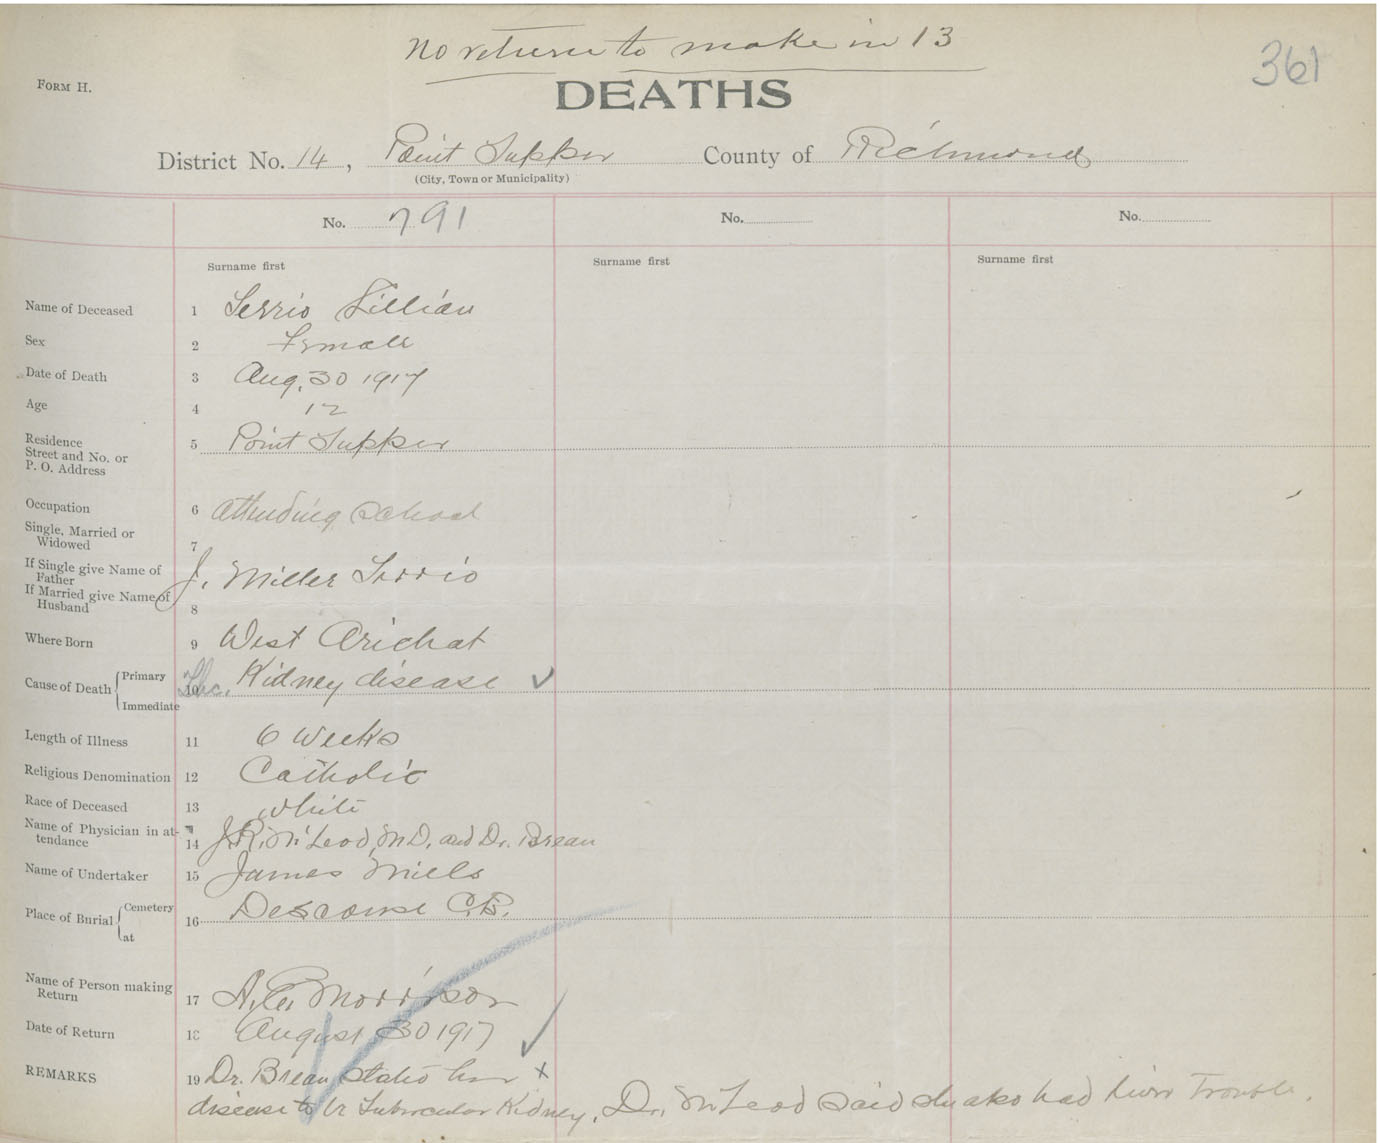 No return to make in 13
361
FORM H.
DEATHS
District No. 14, Point Tupper County of Richmond
(City, Town or Municipality)
No. 791 No. No.
Surname first Surname first Surname first
Name of Deceased 1 Terrio Lillian
Sex 2 Female
Date of Death 3 Aug. 30 1917
Age 4 12
Residence
Street and No. or
P. O. Address 5 Point Tupper
Occupation 6 attending school
Single, Married or
Widowed 7
If Single give Name of
Father
If Married give Name of
Husband 8 J. Miller Terrio
Where Born 9 West Arichat
Cause of Death Primary 10 Kidney disease ✓
Immediate
Length of Illness 11 6 Weeks
Religious Denomination 12 Catholic
Race of Deceased 13 white
Name of Physician in at-
tendance 14 J. R. McLeod, M.D. and Dr. Brean
Name of Undertaker 15 James Mills
Place of Burial Cemetery 16 Descouse C.B.
at
Name of Person making
Return 17 Morrison
Date of Return 18 August 30 1917
REMARKS 19 Dr. Brean states her x
disease to be Tubercular Kidney. Dr. McLeod said she also had liver Trouble.